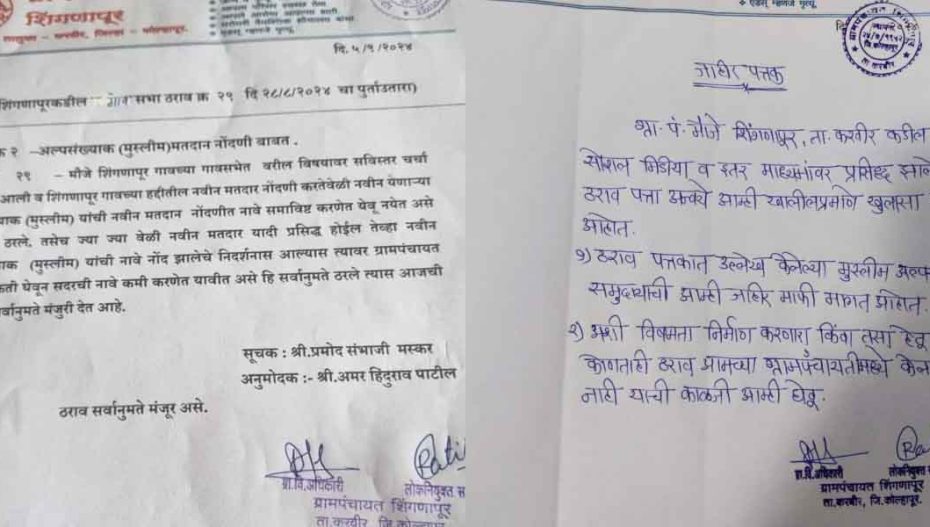 शिंगणापूर
तालुका - करवीर, जिल्हा - कोल्हापूर.
दि. ५/९/२०२४
शिंगणापूरकडील गाव सभा ठराव क्र २९ दि २८/८/२०२४ चा पुर्ताउतारा)
क्र २ –अल्पसंख्याक (मुस्लीम)मतदान नोंदणी बाबत .
२९ – मौजे शिंगणापूर गावच्या गावसभेत वरील विषयावर सविस्तर चर्चा
आली व शिंगणापूर गावच्या हद्दीतील नवीन मतदार नोंदणी करतेवेळी नवीन येणाऱ्या
याक (मुस्लीम) यांची नवीन मतदान नोंदणीत नावे समाविष्ट करणेत येवू नयेत असे
ठरले, तसेच ज्या ज्या वेळी नवीन मतदार यादी प्रसिद्ध होईल तेव्हा नवीन
याक (मुस्लीम) यांची नावे नोंद झालेचे निदर्शनास आल्यास त्यावर ग्रामपंचायत
कती घेवून सदरची नावे कमी करणेत यावीत असे हि सर्वानुमते ठरले त्यास आजची
र्वानुमते मंजुरी देत आहे.
सूचक : श्री.प्रमोद संभाजी मस्कर
अनुमोदक :- श्री.अमर हिंदुराव पाटील
ठराव सर्वानुमते मंजूर असे.
ग्रा.वि.अधिकारी
लोकनियुक्त स
ग्रामपंचायत शिंगणापूर
ता.करवीर, जि.कोल्हापूर
एडस् म्हणजे मृत्यू
जाहीर पत्रक
ग्रा. पं. मौजे शिंगणापूर, ता. करवीर कडील
सोशल मिडीया व इतर माध्यमांवर प्रसिद्ध झाले
ठराव पत्रा अन्वये आम्ही खालीलप्रमाणे खुलासा
आहोत.
१) ठराव पत्रकात उल्लेख केलेल्या मुस्लीम अल्प
समुदायाची आम्ही जाहिर माफी मागत आहोत.
२) अशी विषमता निर्माण करणारा किंवा तसा हेतू
कोणताही ठराव आमच्या ग्रामपंचायतीमध्ये केल
नाही याची काळजी आम्ही घेवू.
ग्रा.वि.अधिकारी
लोकनियुक्त स
ग्रामपंचायत शिंगणापूर
ता.करवीर, जि.कोल्हापूर.